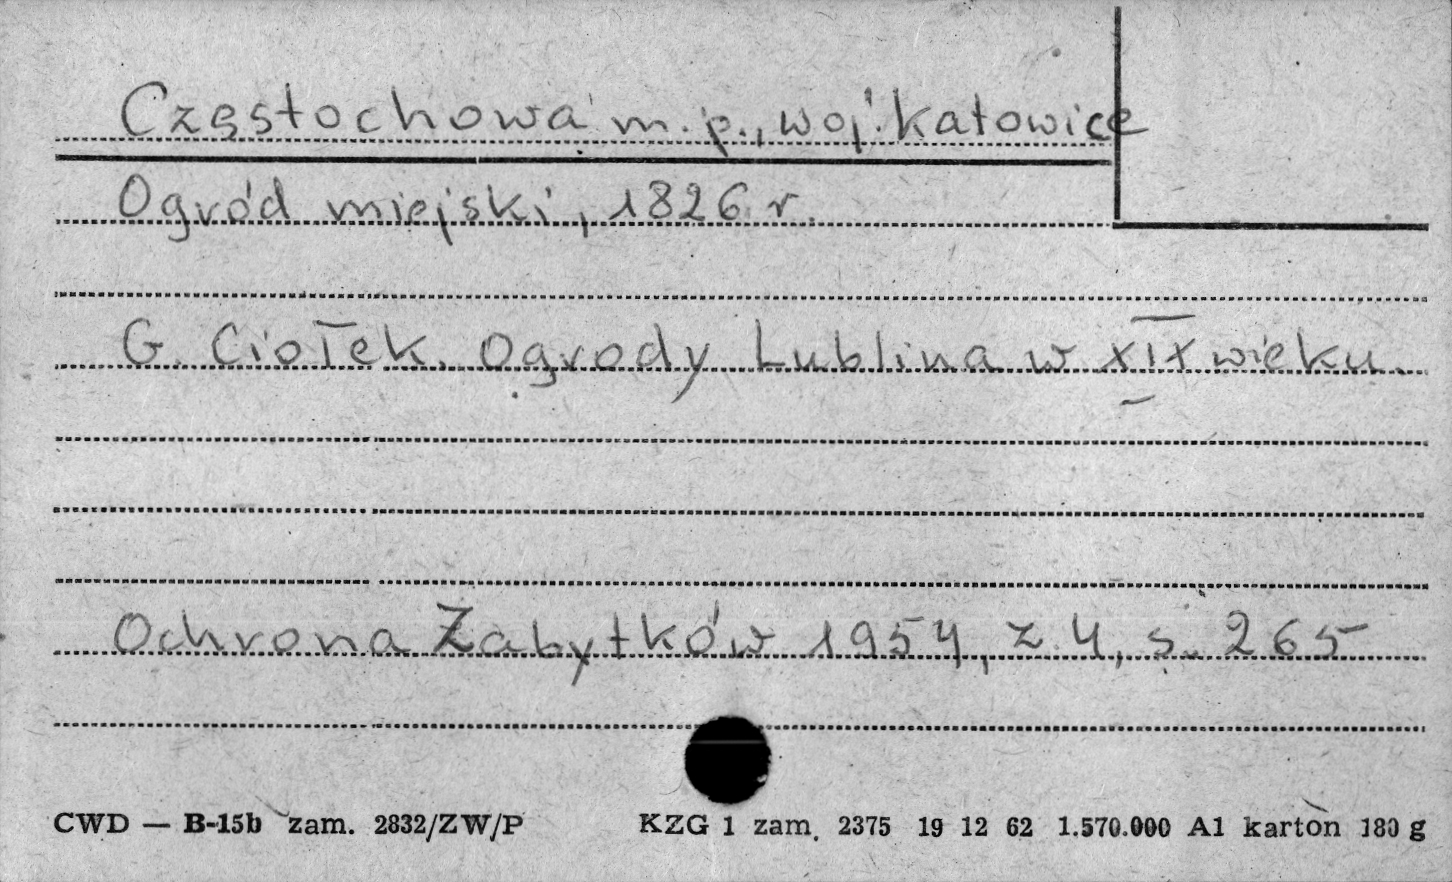 Częstochowa m.p., woj. katowice
Ogród miejski, 1826 r.
G. Ciołek. Ogrody Lublina w XIX wieku.
Ochrona Zabytków 1954, z. 4, s. 265
CWD — B-15b zam. 2832/ZW/P KZG 1 zam. 2375 19 12 62 1.570.000 A1 karton 180 g